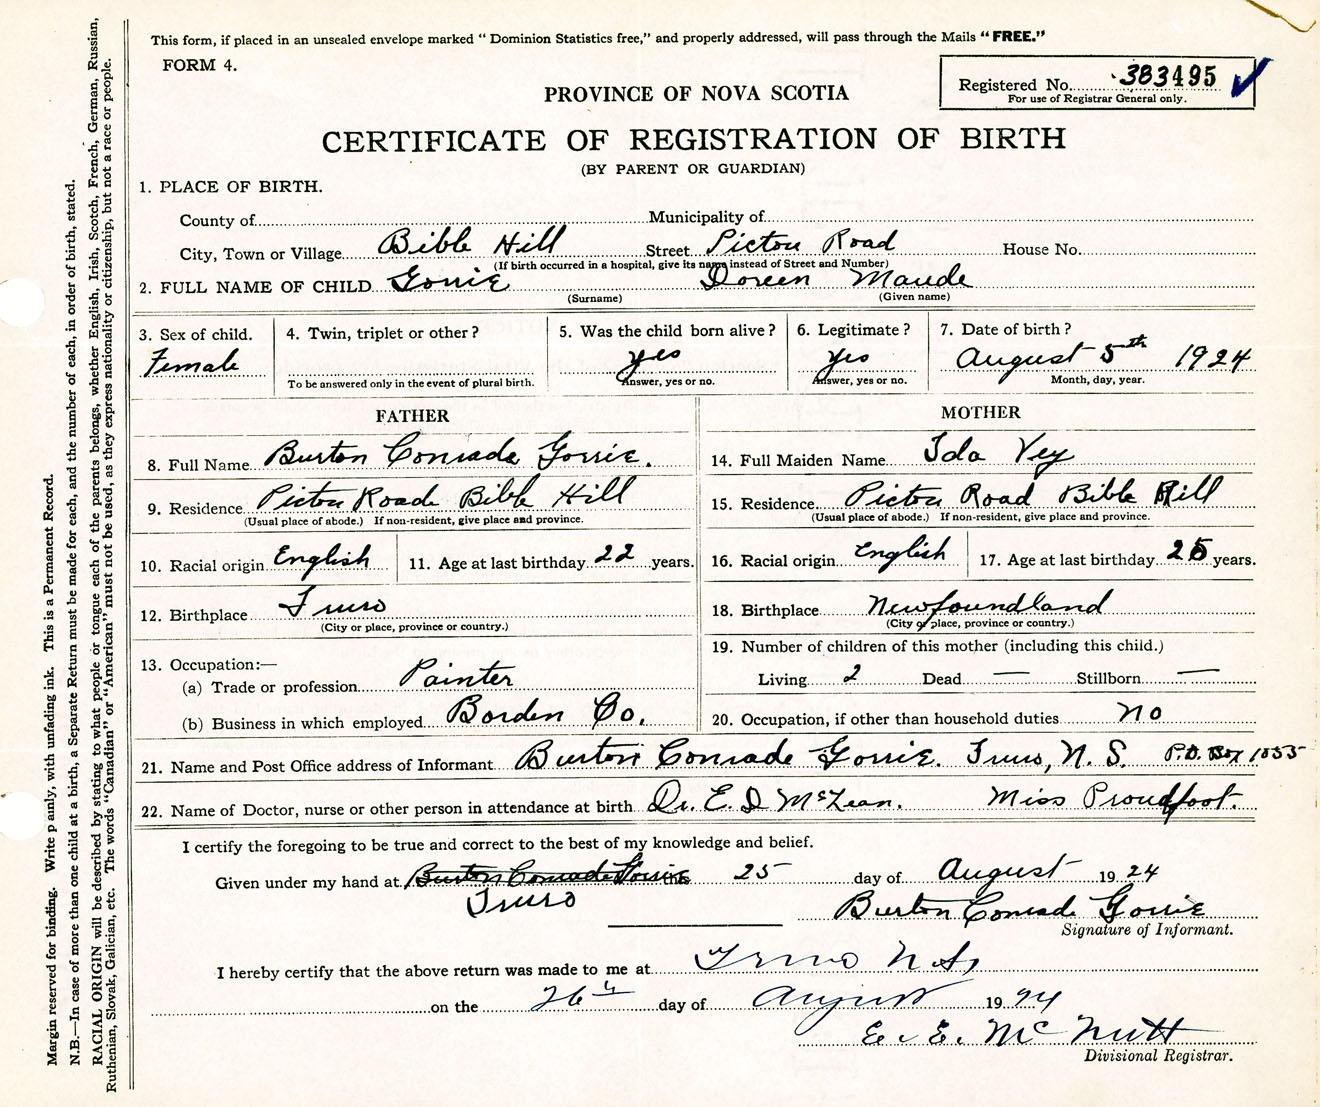 This form, if placed in an unsealed envelope marked "Dominion Statistics free," and properly addressed, will pass through the Mails "FREE."
FORM 4.
Registered No. 383495
For use of Registrar General only.
PROVINCE OF NOVA SCOTIA
CERTIFICATE OF REGISTRATION OF BIRTH
(BY PARENT OR GUARDIAN)
1. PLACE OF BIRTH.
County of Municipality of
City, Town or Village Bible Hill Street Pictou Road House No.
(If birth occurred in a hospital, give its name instead of Street and Number)
2. FULL NAME OF CHILD Gorrie Doreen Maude
(Surname) (Given name)
3. Sex of child. 4. Twin, triplet or other? 5. Was the child born alive? 6. Legitimate? 7. Date of birth?
Female yes Yes August 5th 1924
To be answered only in the event of plural birth. Answer, yes or no. Answer, yes or no. Month, day, year.
FATHER MOTHER
8. Full Name Burton Conrade Gorrie. 14. Full Maiden Name Ida Vey
9. Residence Pictou Road Bible Hill 15. Residence Pictou Road Bible Hill
(Usual place of abode.) If non-resident, give place and province. (Usual place of abode.) If non-resident, give place and province.
10. Racial origin English 11. Age at last birthday 22 years. 16. Racial origin English 17. Age at last birthday 25 years.
12. Birthplace Truro 18. Birthplace Newfoundland
(City or place, province or country.) (City or place, province or country.)
13. Occupation:— 19. Number of children of this mother (including this child.)
(a) Trade or profession Painter Living 2 Dead — Stillborn —
(b) Business in which employed Borden Co. 20. Occupation, if other than household duties no
21. Name and Post Office address of Informant Burton Conrade Gorrie. Truro, N.S. P.O. Box 1055
22. Name of Doctor, nurse or other person in attendance at birth Dr. E. D McLean. Miss Proudfoot.
I certify the foregoing to be true and correct to the best of my knowledge and belief.
Given under my hand at Burton Conrade Gorrie this 25 day of August 1924
Truro Burton Conrade Gorrie
Signature of Informant.
I hereby certify that the above return was made to me at Truro N.S,
on the 26th day of August 1924
E. E. McNutt
Divisional Registrar.
Margin reserved for binding. Write p ainly, with unfading ink. This is a Permanent Record.
N.B.—In case of more than one child at a birth, a Separate Return must be made for each, and the number of each, in order of birth, stated.
RACIAL ORIGIN will be described by stating to what people or tongue each of the parents belongs, whether English, Irish, Scotch, French, German, Russian,
Ruthenian, Slovak, Galician, etc. The words "Canadian" or "American" must not be used, as they express nationality or citizenship, but not a race or people.